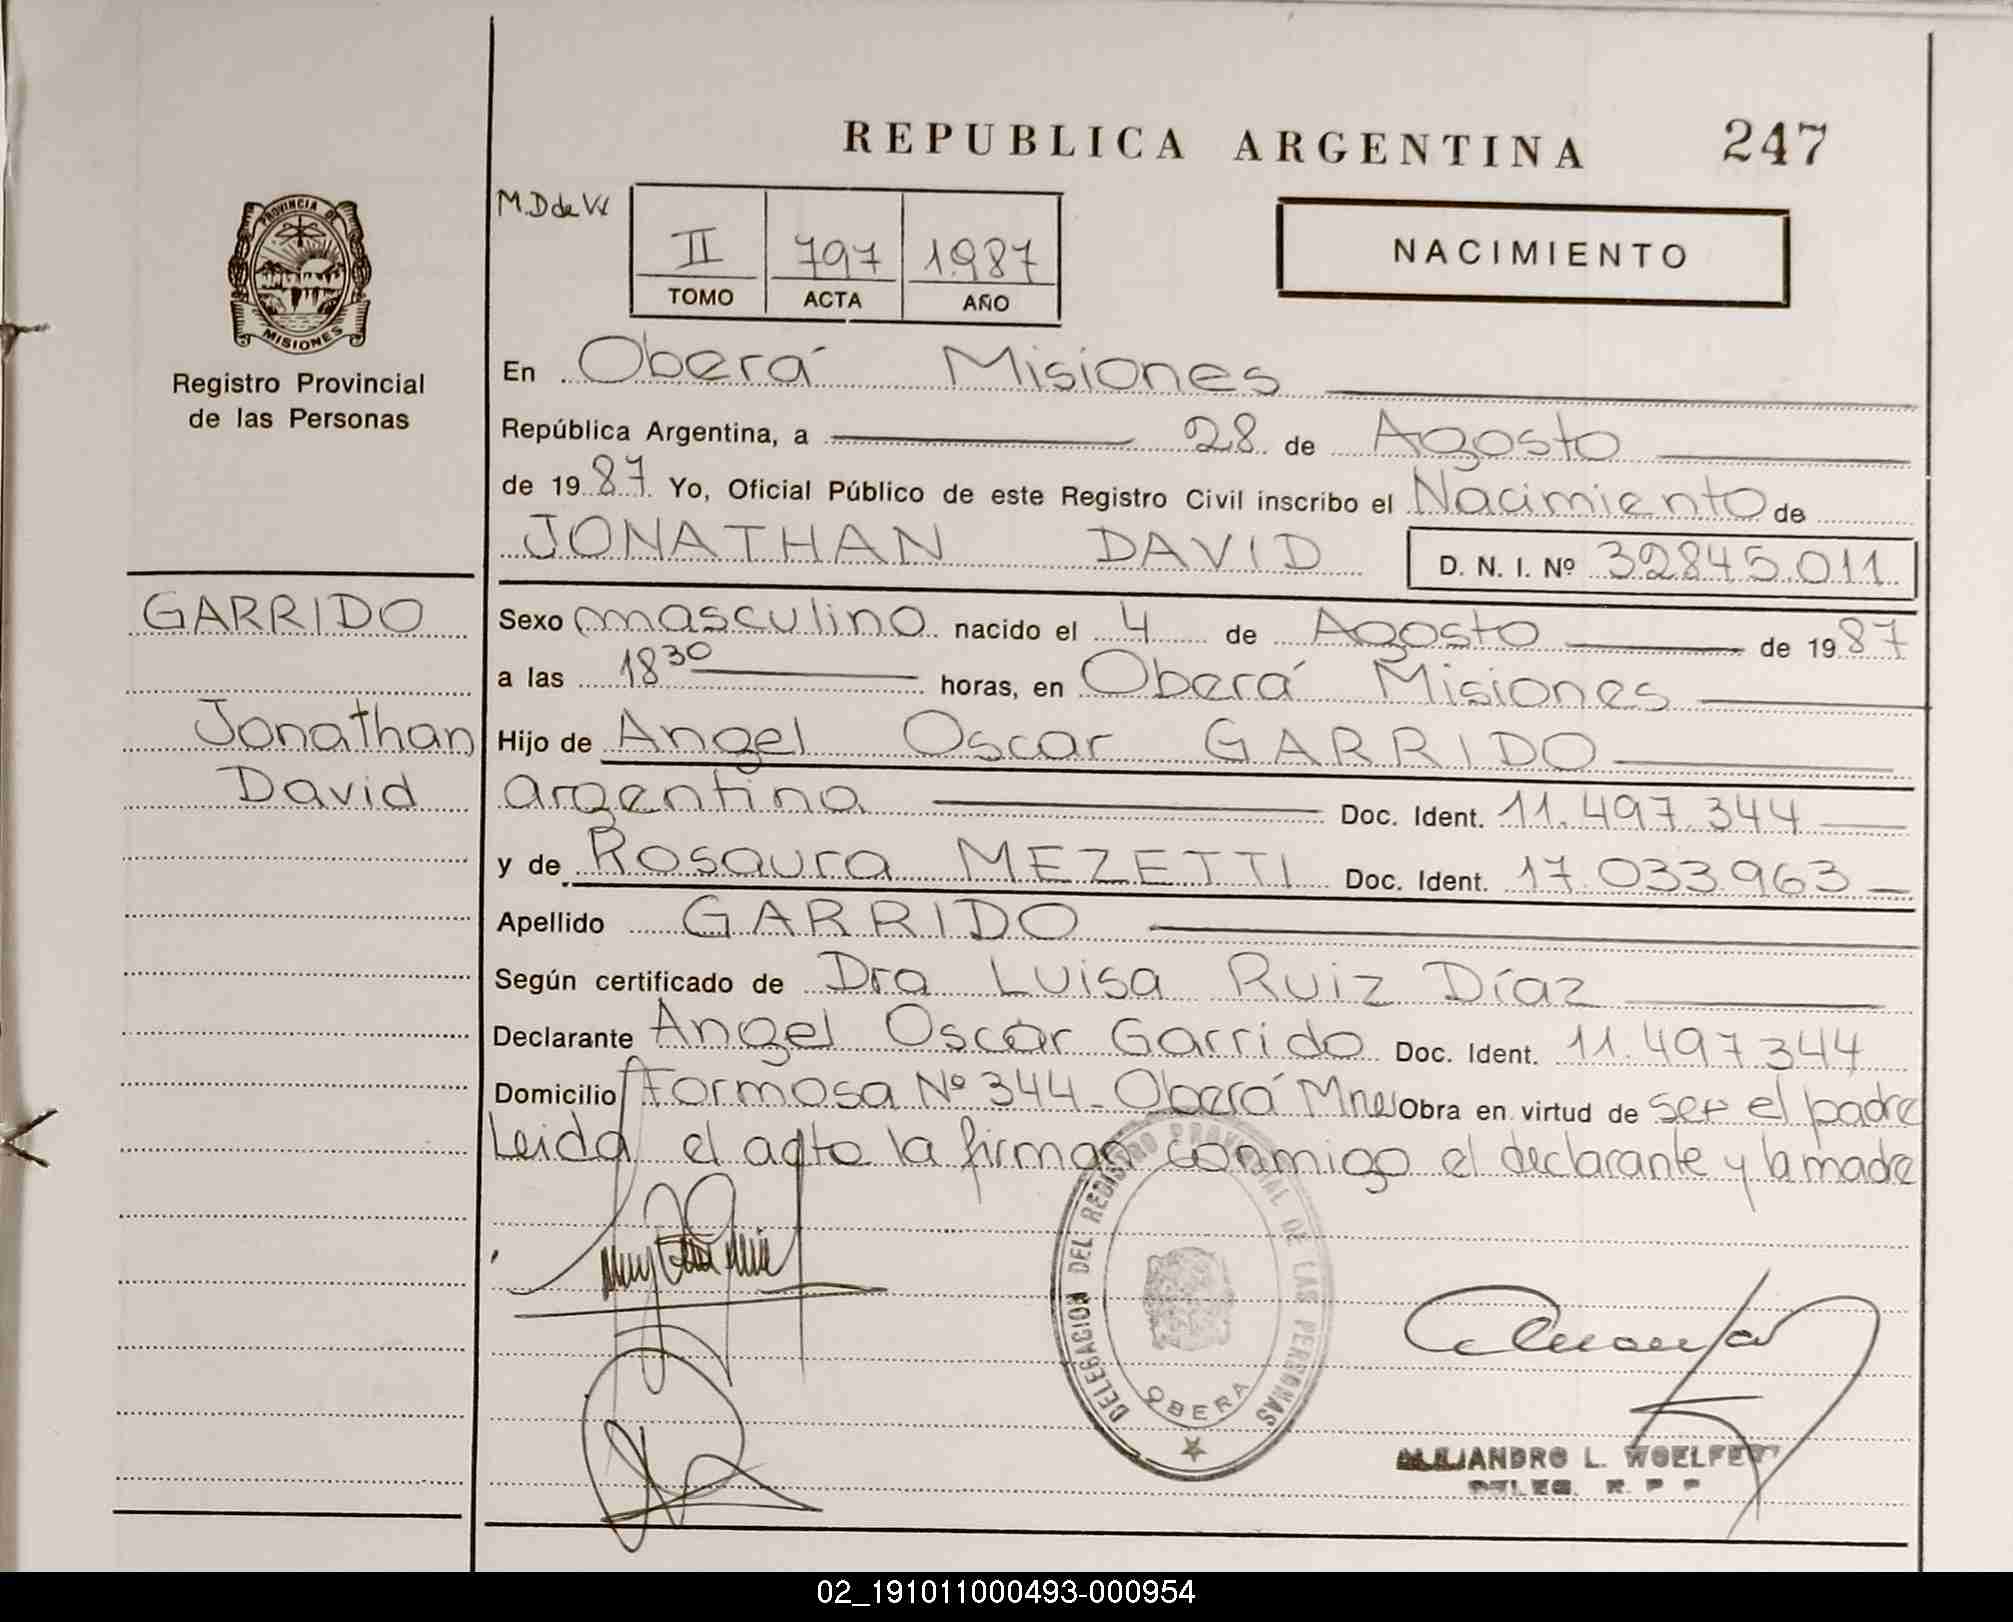 REPUBLICA ARGENTINA 247
M.D de W
II 797 1987
TOMO ACTA AÑO
NACIMIENTO
PROVINCIA DE
MISIONES
Registro Provincial
de las Personas
GARRIDO
Jonathan
David
En Oberá Misiones
República Argentina, a 28 de Agosto
de 1987 Yo, Oficial Público de este Registro Civil inscribo el Nacimiento de
JONATHAN DAVID D. N. I. Nº 32845.011
Sexo masculino nacido el 4 de Agosto de 1987
a las 18 30 horas, en Oberá Misiones
Hijo de Angel Oscar GARRIDO
argentino Doc. Ident. 11.497.344
y de Rosaura MEZETTI Doc. Ident. 17.033.963
Apellido GARRIDO
Según certificado de Dra Luisa Ruiz Díaz
Declarante Angel Oscar Garrido Doc. Ident. 11.497344
Domicilio Formosa Nº 344 - Oberá Mnes Obra en virtud de ser el padre
Leida el acta la firman conmigo el declarante y la madre
DELEGACION DEL REGISTRO PROVINCIAL DE LAS PERSONAS
OBERA
ALEJANDRO L. WOELFERT
DELEG. R. P P
02_191011000493-000954